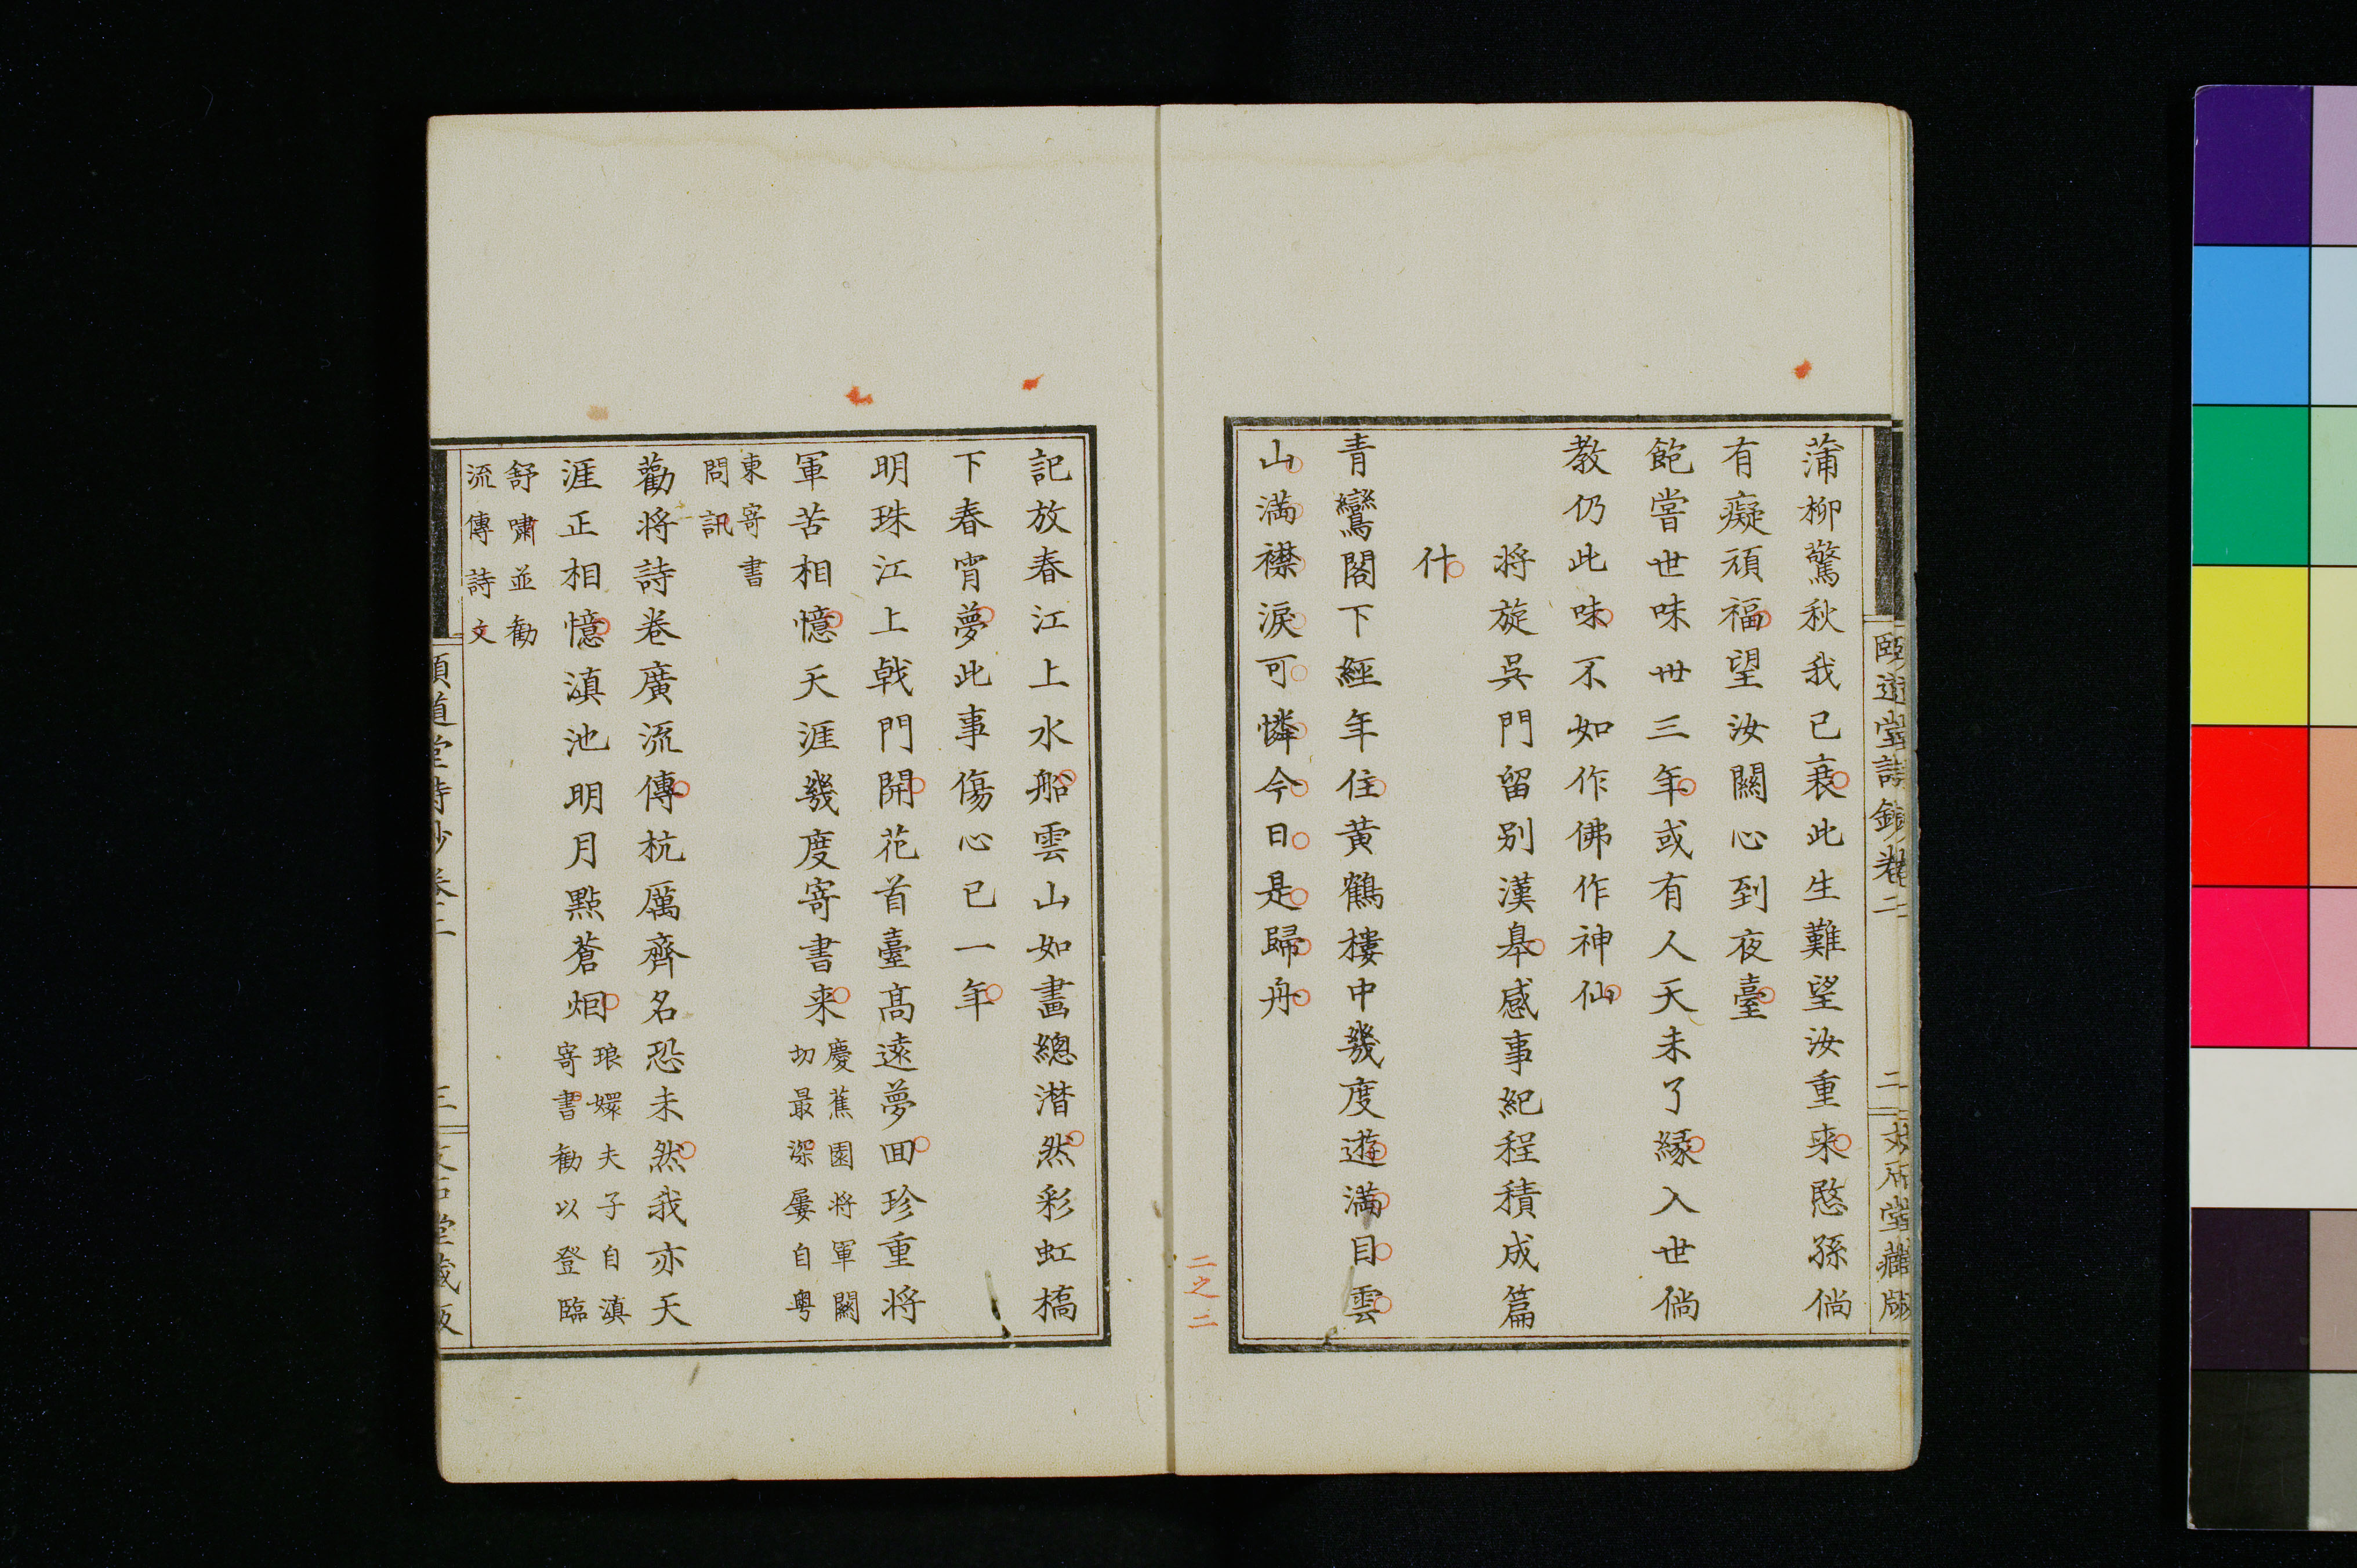 頤道堂詩鈔卷二
二
文石堂藏版
蒲柳驚秋我已衰此生難望汝重来愍孫倘
有癡頑福望汝關心到夜臺
飽嘗世味廿三年或有人天未了緣入世倘
教仍此味不如作佛作神仙
将旋吳門留别漢皋感事紀程積成篇
什
青鸞閣下經年住黃鶴樓中幾度遊滿目雲
山滿襟淚可憐今日是歸舟
二之二
記放春江上水船雲山如畫總潸然彩虹橋
下春宵夢此事傷心已一年
明珠江上戟門開花首臺髙遠夢囬珍重将
軍苦相憶天涯幾度寄書来慶蕉園将軍關
切最深屢自粤
東寄書
問訊
勸将詩卷廣流傳杭厲齊名恐未然我亦天
涯正相憶滇池明月點蒼烟琅嬛夫子自滇
寄書勸以登臨
舒嘯並勸
流傳詩文
頤道堂詩鈔卷二
三
文石堂藏版